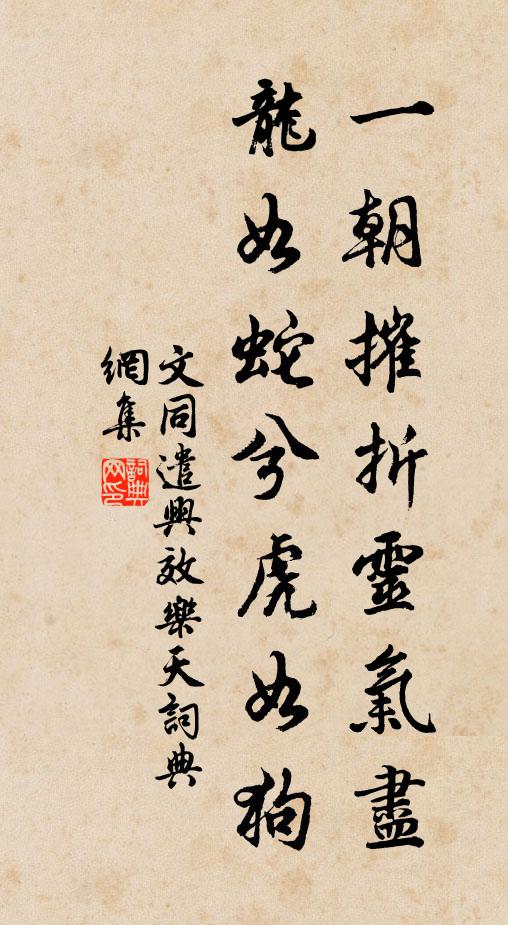 一朝摧折靈氣盡
龍如蛇兮虎如狗
文同遣興效樂天詞典
網集
詞典網印